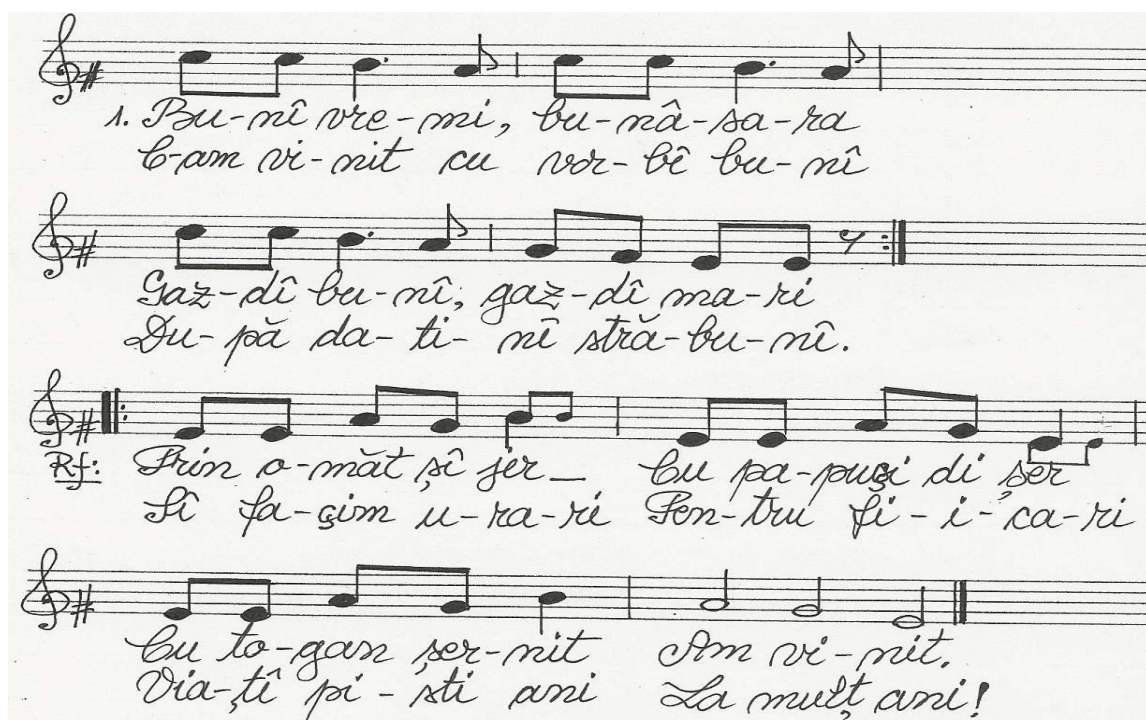 1. Bu-nî vre-mi, bu-nâ-sa-ra
C-am vi-nit cu vor-bê bu-nî
Gaz-dî bu-nî, gaz-dî ma-ri
Du-pă da-ti-nî stră-bu-nî.
Rf: Prin o-măt șî jer_ Cu pa-puși di șer
Sî fa-șim u-ra-ri Pen-tru fi-i-ca-ri
Cu to-gan șer-nit Am vi-nit.
Via-țî pi-ști ani La mulț ani!